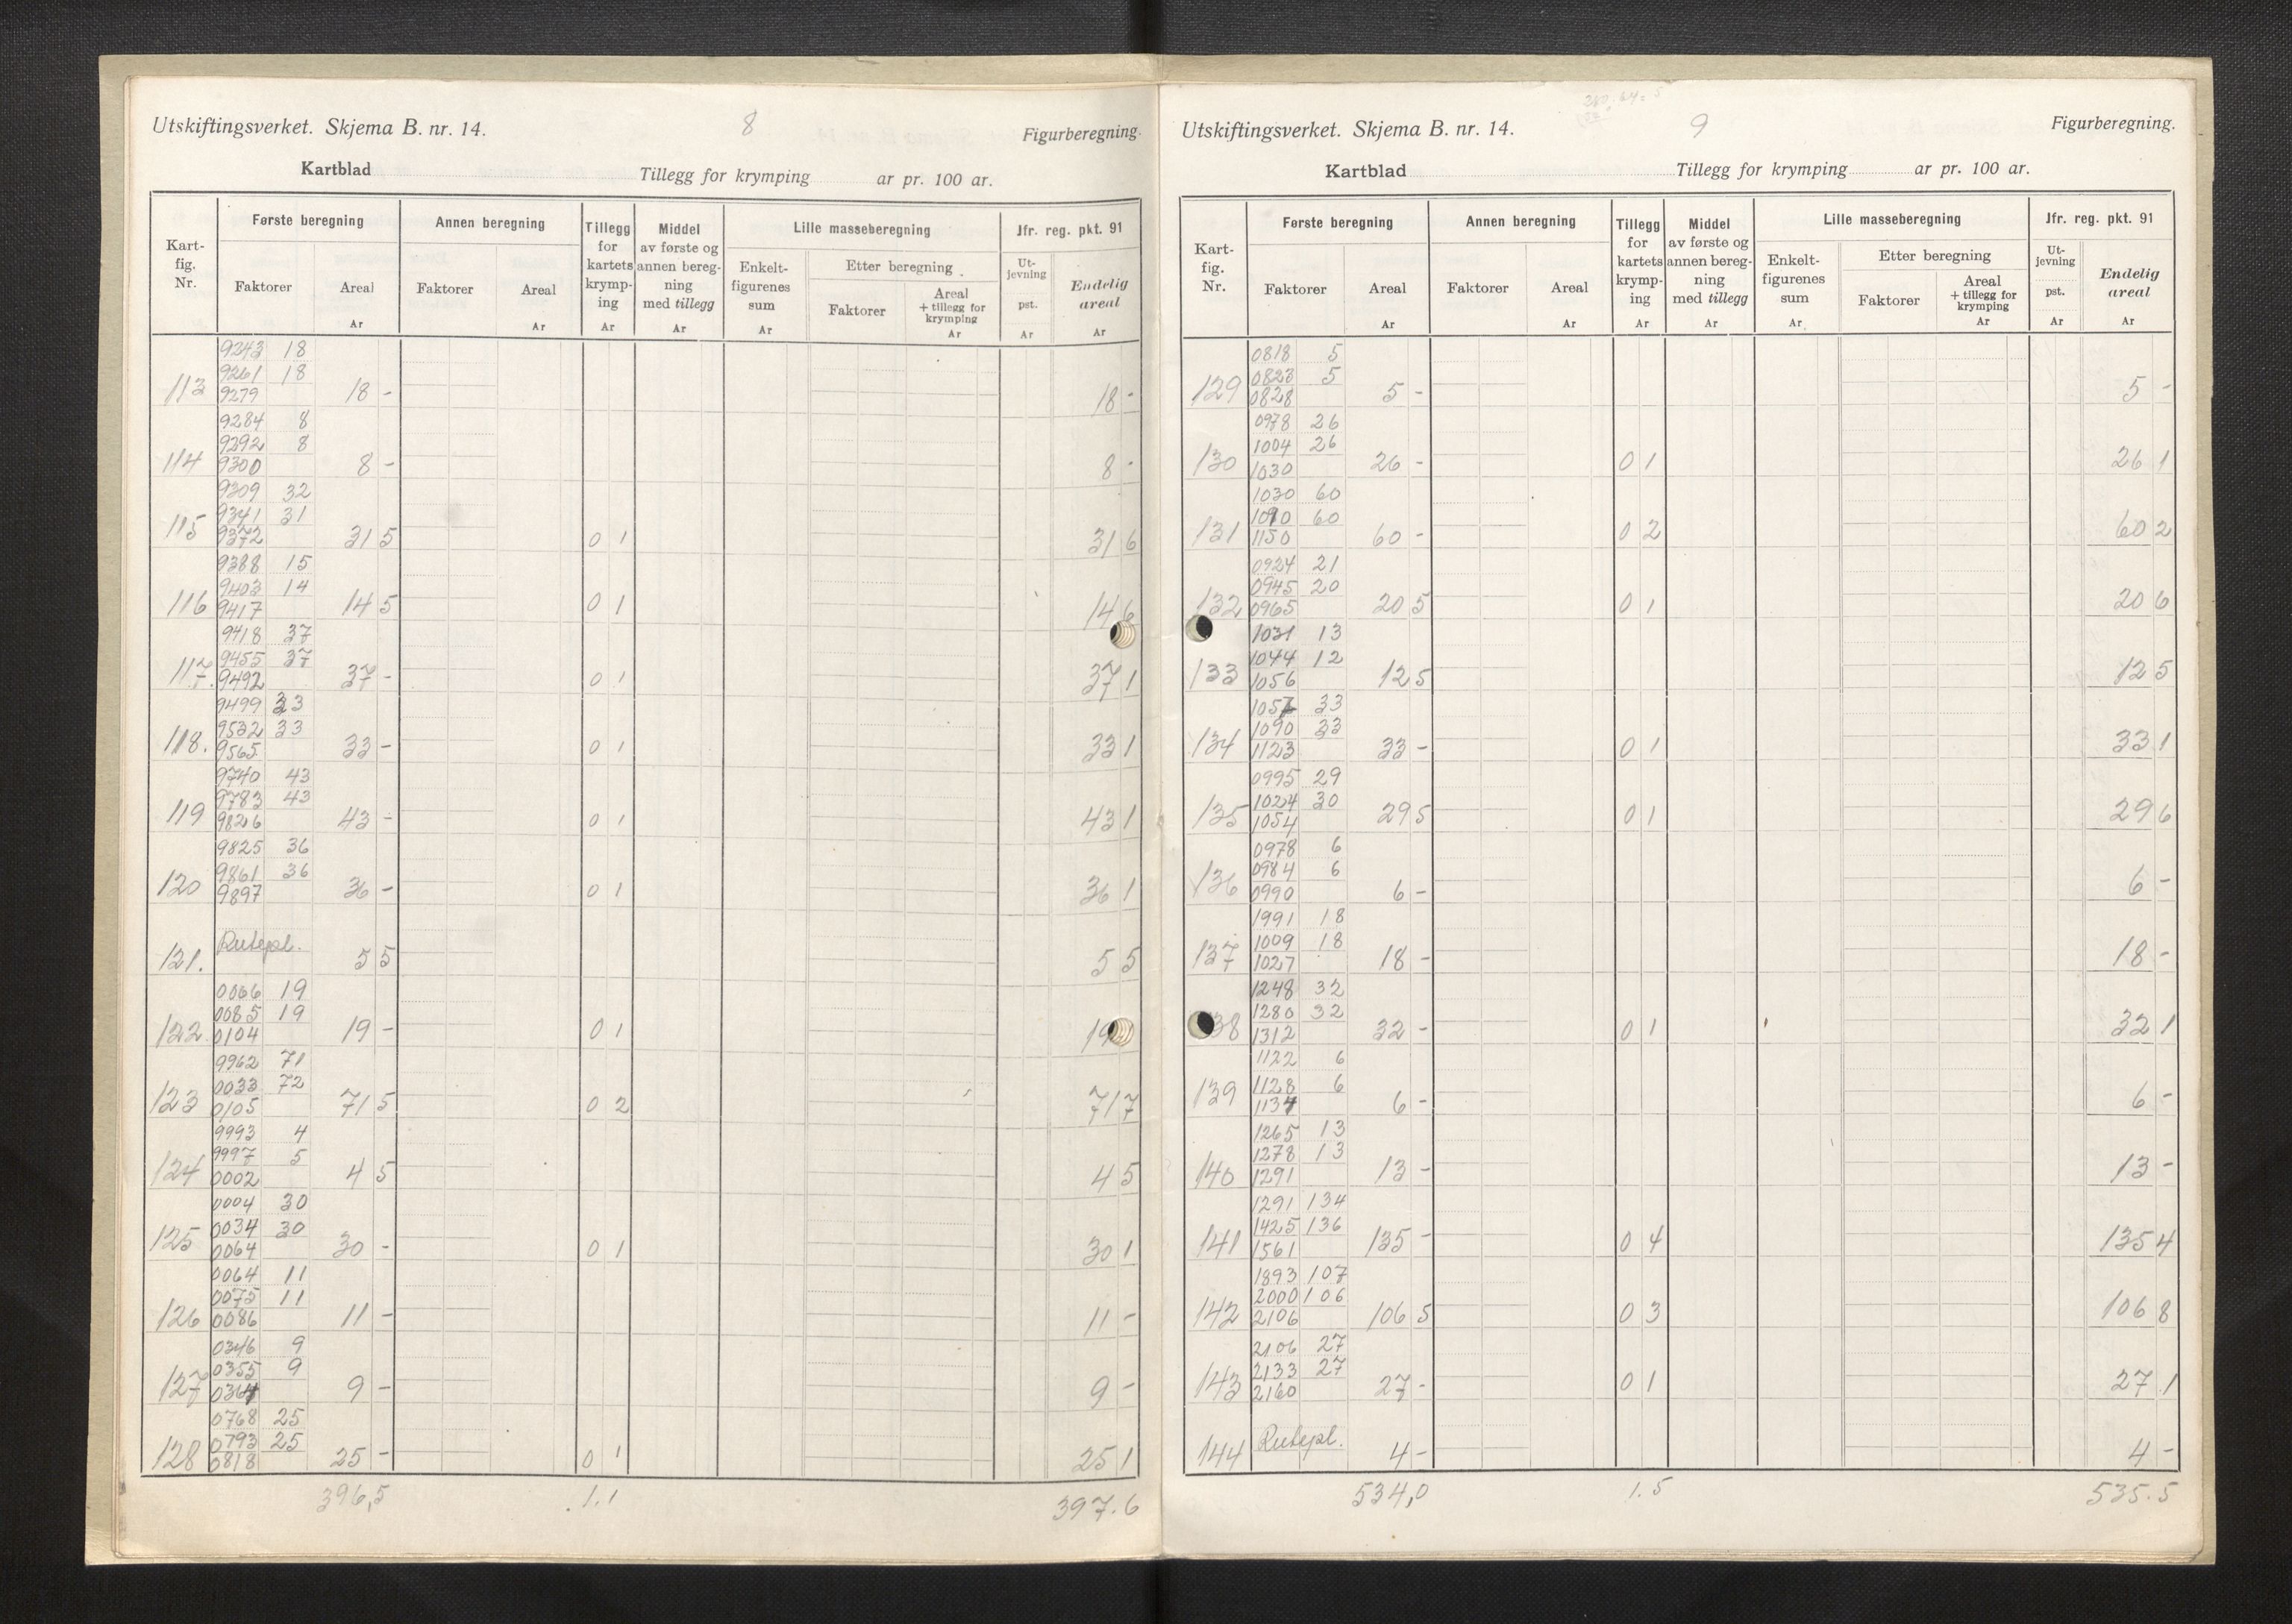 Utskiftingsverket. Skjema B. nr. 14. 8 Figurberegning.
Kartblad Tillegg for krymping ar pr. 100 ar.
Kart-fig. Nr. Første beregning Annen beregning Tillegg for kartets krymp-ing Middel av første og annen bereg-ning med tillegg Lille masseberegning Jfr. reg. pkt. 91
Faktorer Areal Faktorer Areal Enkelt-figurenes sum Etter beregning Ut-jevning pst. Endelig areal
Faktorer Areal + tillegg for krymping
Ar Ar Ar Ar Ar Ar Ar Ar
9243 18
9261 18
113 9279 18 - 18 -
9284 8
9292 8
114 9300 8 - 8 -
9309 32
9341 31
115 9372 31 5 0 1 31 6
9388 15
9403 14
116 9417 14 5 0 1 14 6
9418 37
9455 37
117. 9492 37 - 0 1 37 1
9499 33
9532 33
118. 9565 33 - 0 1 33 1
9740 43
9783 43
119 9826 43 - 0 1 43 1
9825 36
9861 36
120 9897 36 - 0 1 36 1
Rutepl.
121. 5 5 5 5
0066 19
0085 19
122 0104 19 - 0 1 19
9962 71
0033 72
123 0105 71 5 0 2 71 7
9993 4
9997 5
124 0002 4 5 4 5
0004 30
0034 30
125 0064 30 - 0 1 30 1
0064 11
0075 11
126 0086 11 - 11 -
0346 9
0355 9
127 0364 9 - 9 -
0768 25
0793 25
128 0818 25 - 0 1 25 1
396,5 1.1 397.6
Utskiftingsverket. Skjema B. nr. 14. 9 Figurberegning.
Kartblad Tillegg for krymping ar pr. 100 ar.
Kart-fig. Nr. Første beregning Annen beregning Tillegg for kartets krymp-ing Middel av første og annen bereg-ning med tillegg Lille masseberegning Jfr. reg. pkt. 91
Faktorer Areal Faktorer Areal Enkelt-figurenes sum Etter beregning Ut-jevning pst. Endelig areal
Faktorer Areal + tillegg for krymping
Ar Ar Ar Ar Ar Ar Ar Ar
0818 5
0823 5
129 0828 5 - 5 -
0978 26
1004 26
130 1030 26 - 0 1 26 1
1030 60
1090 60
131 1150 60 - 0 2 60 2
0924 21
0945 20
132 0965 20 5 0 1 20 6
1031 13
1044 12
133 1056 12 5 12 5
1057 33
1090 33
134 1123 33 - 0 1 33 1
0995 29
1024 30
135 1054 29 5 0 1 29 6
0978 6
0984 6
136 0990 6 - 6 -
1991 18
1009 18
137 1027 18 - 18 -
1248 32
1280 32
38 1312 32 - 0 1 32 1
1122 6
1128 6
139 1134 6 - 6 -
1265 13
1278 13
140 1291 13 - 13 -
1291 134
1425 136
141 1561 135 - 0 4 135 4
1893 107
2000 106
142 2106 106 5 0 3 106 8
2106 27
2133 27
143 2160 27 - 0 1 27 1
Rutepl.
144 4 - 4 -
534,0 1.5 535.5